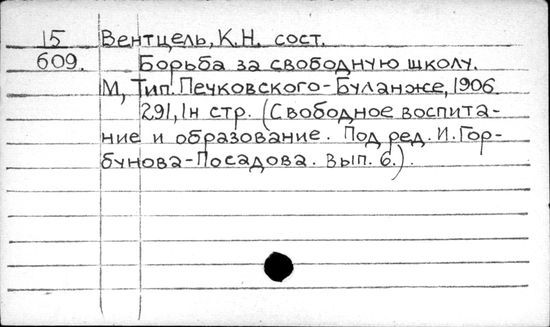 15 Вентцель, К.Н. сост.
609. Борьба за свободную школу.
М, Тип. Печковского-Буланже, 1906
291, 1н стр. (Свободное воспита-
ние и образование. Под ред. И. Гор-
бунова-Посадова. Вып. 6.).